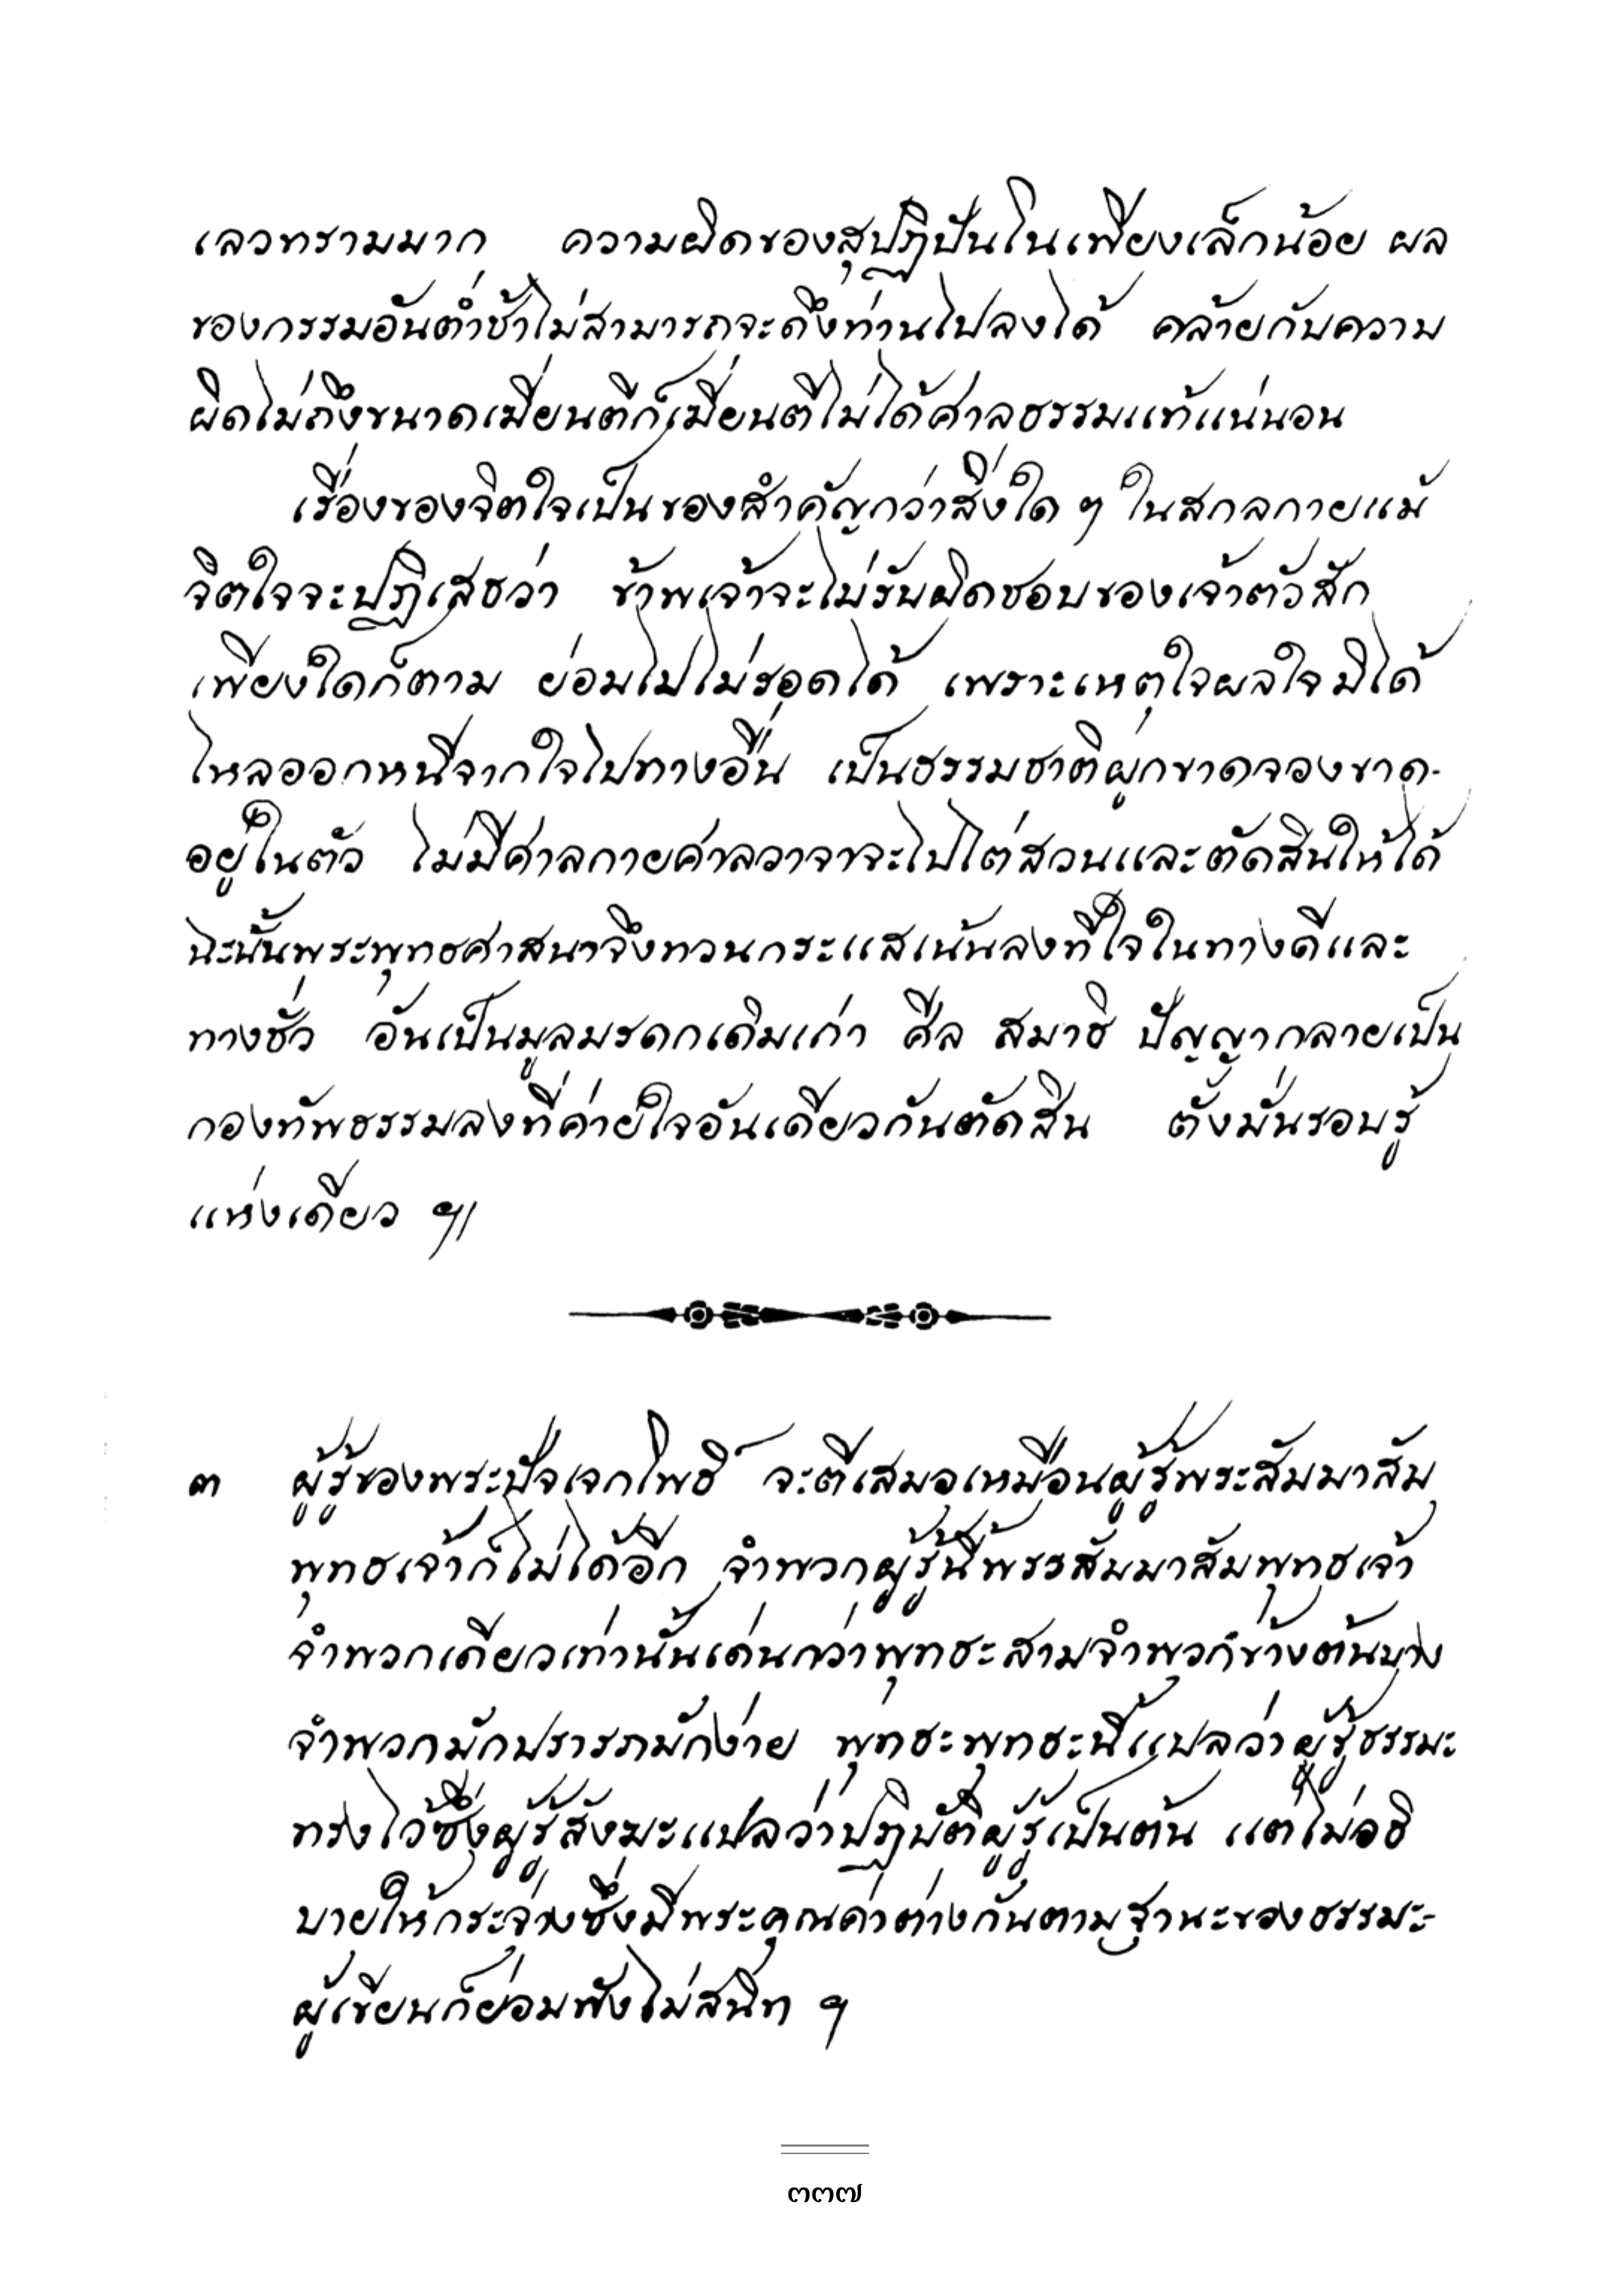 เลวทรามมาก ความผิดของสุปฏิปันโนเพียงเล็กน้อย ผล
ของกรรมอันต่ำช้าไม่สามารถจะดึงท่านไปลงได้ คล้ายกับความ
ผิดไม่ถึงขนาดเฆี่ยนตีก็เฆี่ยนตีไม่ได้ศาลธรรมแท้แน่นอน
เรื่องของจิตใจเป็นของสำคัญกว่าสิ่งใด ๆ ในสกลกายแม้
จิตใจจะปฏิเสธว่า ข้าพเจ้าจะไม่รับผิดชอบของเจ้าตัวสัก
เพียงใดก็ตาม ย่อมไปไม่รอดได้ เพราะเหตุใจผลใจมิได้
ไหลออกหนีจากใจไปทางอื่น เป็นธรรมชาติผูกขาดจองขาด
อยู่ในตัว ไม่มีศาลกายศาลวาจาจะไปไต่สวนและตัดสินให้ได้
ฉะนั้นพระพุทธศาสนาจึงทวนกระแสเน้นลงที่ใจในทางดีและ
ทางชั่ว อันเป็นมูลมรดกเดิมเก่า ศีล สมาธิ ปัญญากลายเป็น
กองทัพธรรมลงที่ค่ายใจอันเดียวกันตัดสิน ตั้งมั่นรอบรู้
แห่งเดียว ฯ|
๓ ผู้รู้ของพระปัจเจกโพธิ์ จะตีเสมอเหมือนผู้รู้พระสัมมาสัม
พุทธเจ้าก็ไม่ได้อีก จำพวกผู้รู้นี้พรรสัมมาสัมพุทธเจ้า
จำพวกเดียวเท่านั้นเด่นกว่าพุทธะสามจำพวกข้างต้นบาง
จำพวกมักปรารภมักง่าย พุทธะพุทธะนี้แปลว่าผู้รู้ธรรมะ
ทรงไว้ซึ่งผู้รู้สังฆะแปลว่าปฏิบัติผู้รู้เป็นต้น แต่ไม่อธิ
บายให้กระจ่างซึ่งมีพระคุณค่าต่างกันตามฐานะของธรรมะ
ผู้เขียนก็ย่อมฟังไม่สนิท ฯ
๓๓๗